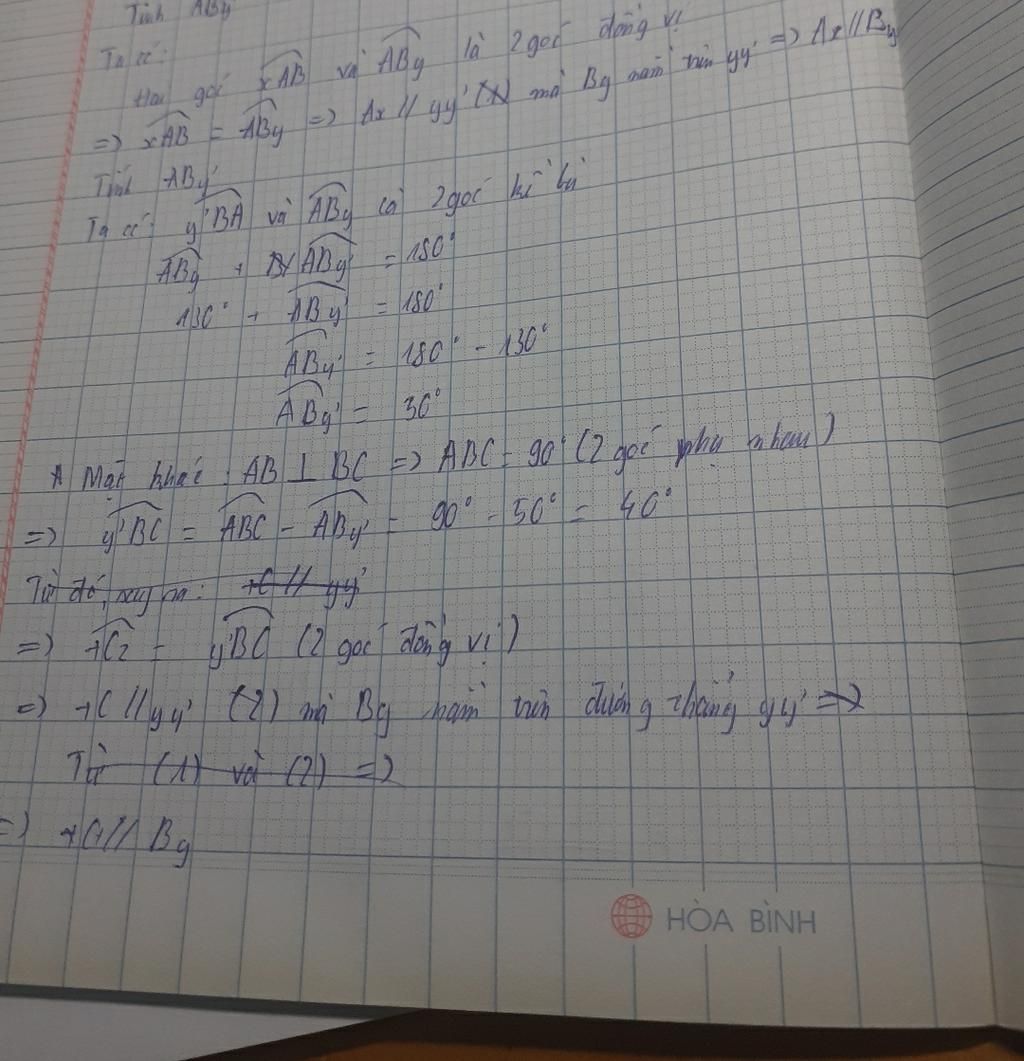 Tính ABy
Ta có:
Hai góc xAB và ABy là 2 góc đồng vị
=> xAB = ABy => Ax // yy' (1) mà By nằm trên yy' => Ax // By
Tính ABy'
Ta có: y'BA và ABy là 2 góc kề bù
ABy + ABy' = 180°
130° + ABy' = 180°
ABy' = 180° - 130°
ABy' = 30°
Mặt khác: AB ⊥ BC => ABC = 90° (2 góc phụ nhau)
=> y'BC = ABC - ABy' = 90° - 50° = 40°
Từ đó, suy ra: tC // yy'
=> tCz = y'BC (2 góc đồng vị)
=> tC // yy' (2) mà By nằm trên đường thẳng yy' =>
Từ (1) và (2) =>
=> tC // By
HÒA BÌNH